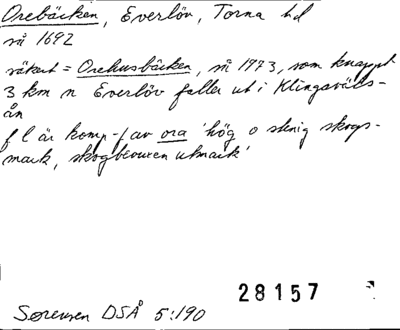 Orebäcken, Everlöv, Torna hd
nå 1692
säkert = Orehusbäcken, nå 1973, som knappt
3 km n Everlöv faller ut i Klingavälsån
f l är komp-f av ora 'hög o stenig skogsmark, skogbevuxen utmark'
28157
Sørensen DSÅ 5:190